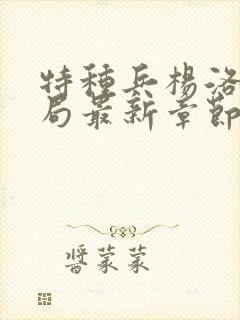 特種兵楊洛
局最新章節
醬蒙蒙